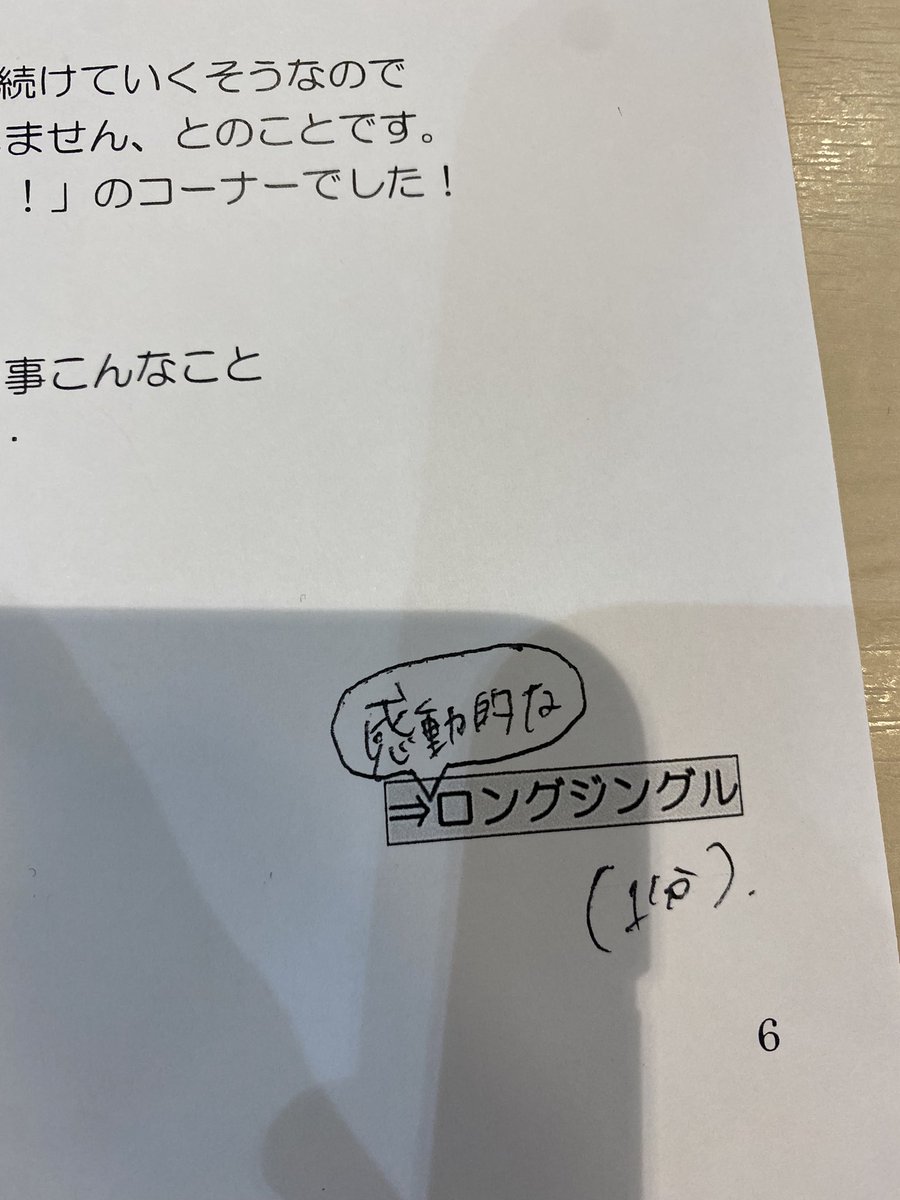 続けていくそうなので
ません、とのことです。
！」のコーナーでした！
事こんなこと
.
感動的な
⇒ロングジングル
6